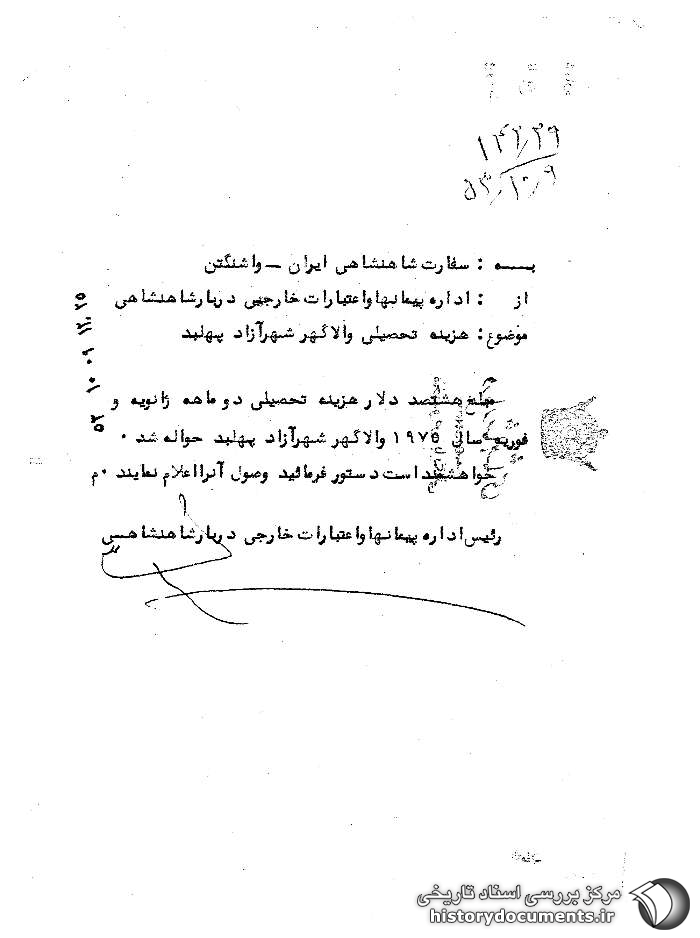 ۱۴۲/۳۹
۵۳/۱۰/۹
به : سفارت شاهنشاهی ایران ــ واشنگتن
از : اداره پیمانها و اعتبارات خارجی دربار شاهنشاهی
موضوع : هزینه تحصیلی والاگهر شهرآزاد پهلبد
مبلغ هشتصد دلار هزینه تحصیلی دو ماهه ژانویه و
فوریه سال ۱۹۷۵ والاگهر شهرآزاد پهلبد حواله شد ۰
خواهشمند است دستور فرمائید وصول آنرا اعلام نمایند ۰م
رئیس اداره پیمانها و اعتبارات خارجی دربار شاهنشاهی
۵۳ ۱۰ ۰۹ ۱۲،۲۵
مرکز بررسی اسناد تاریخی
historydocuments.ir